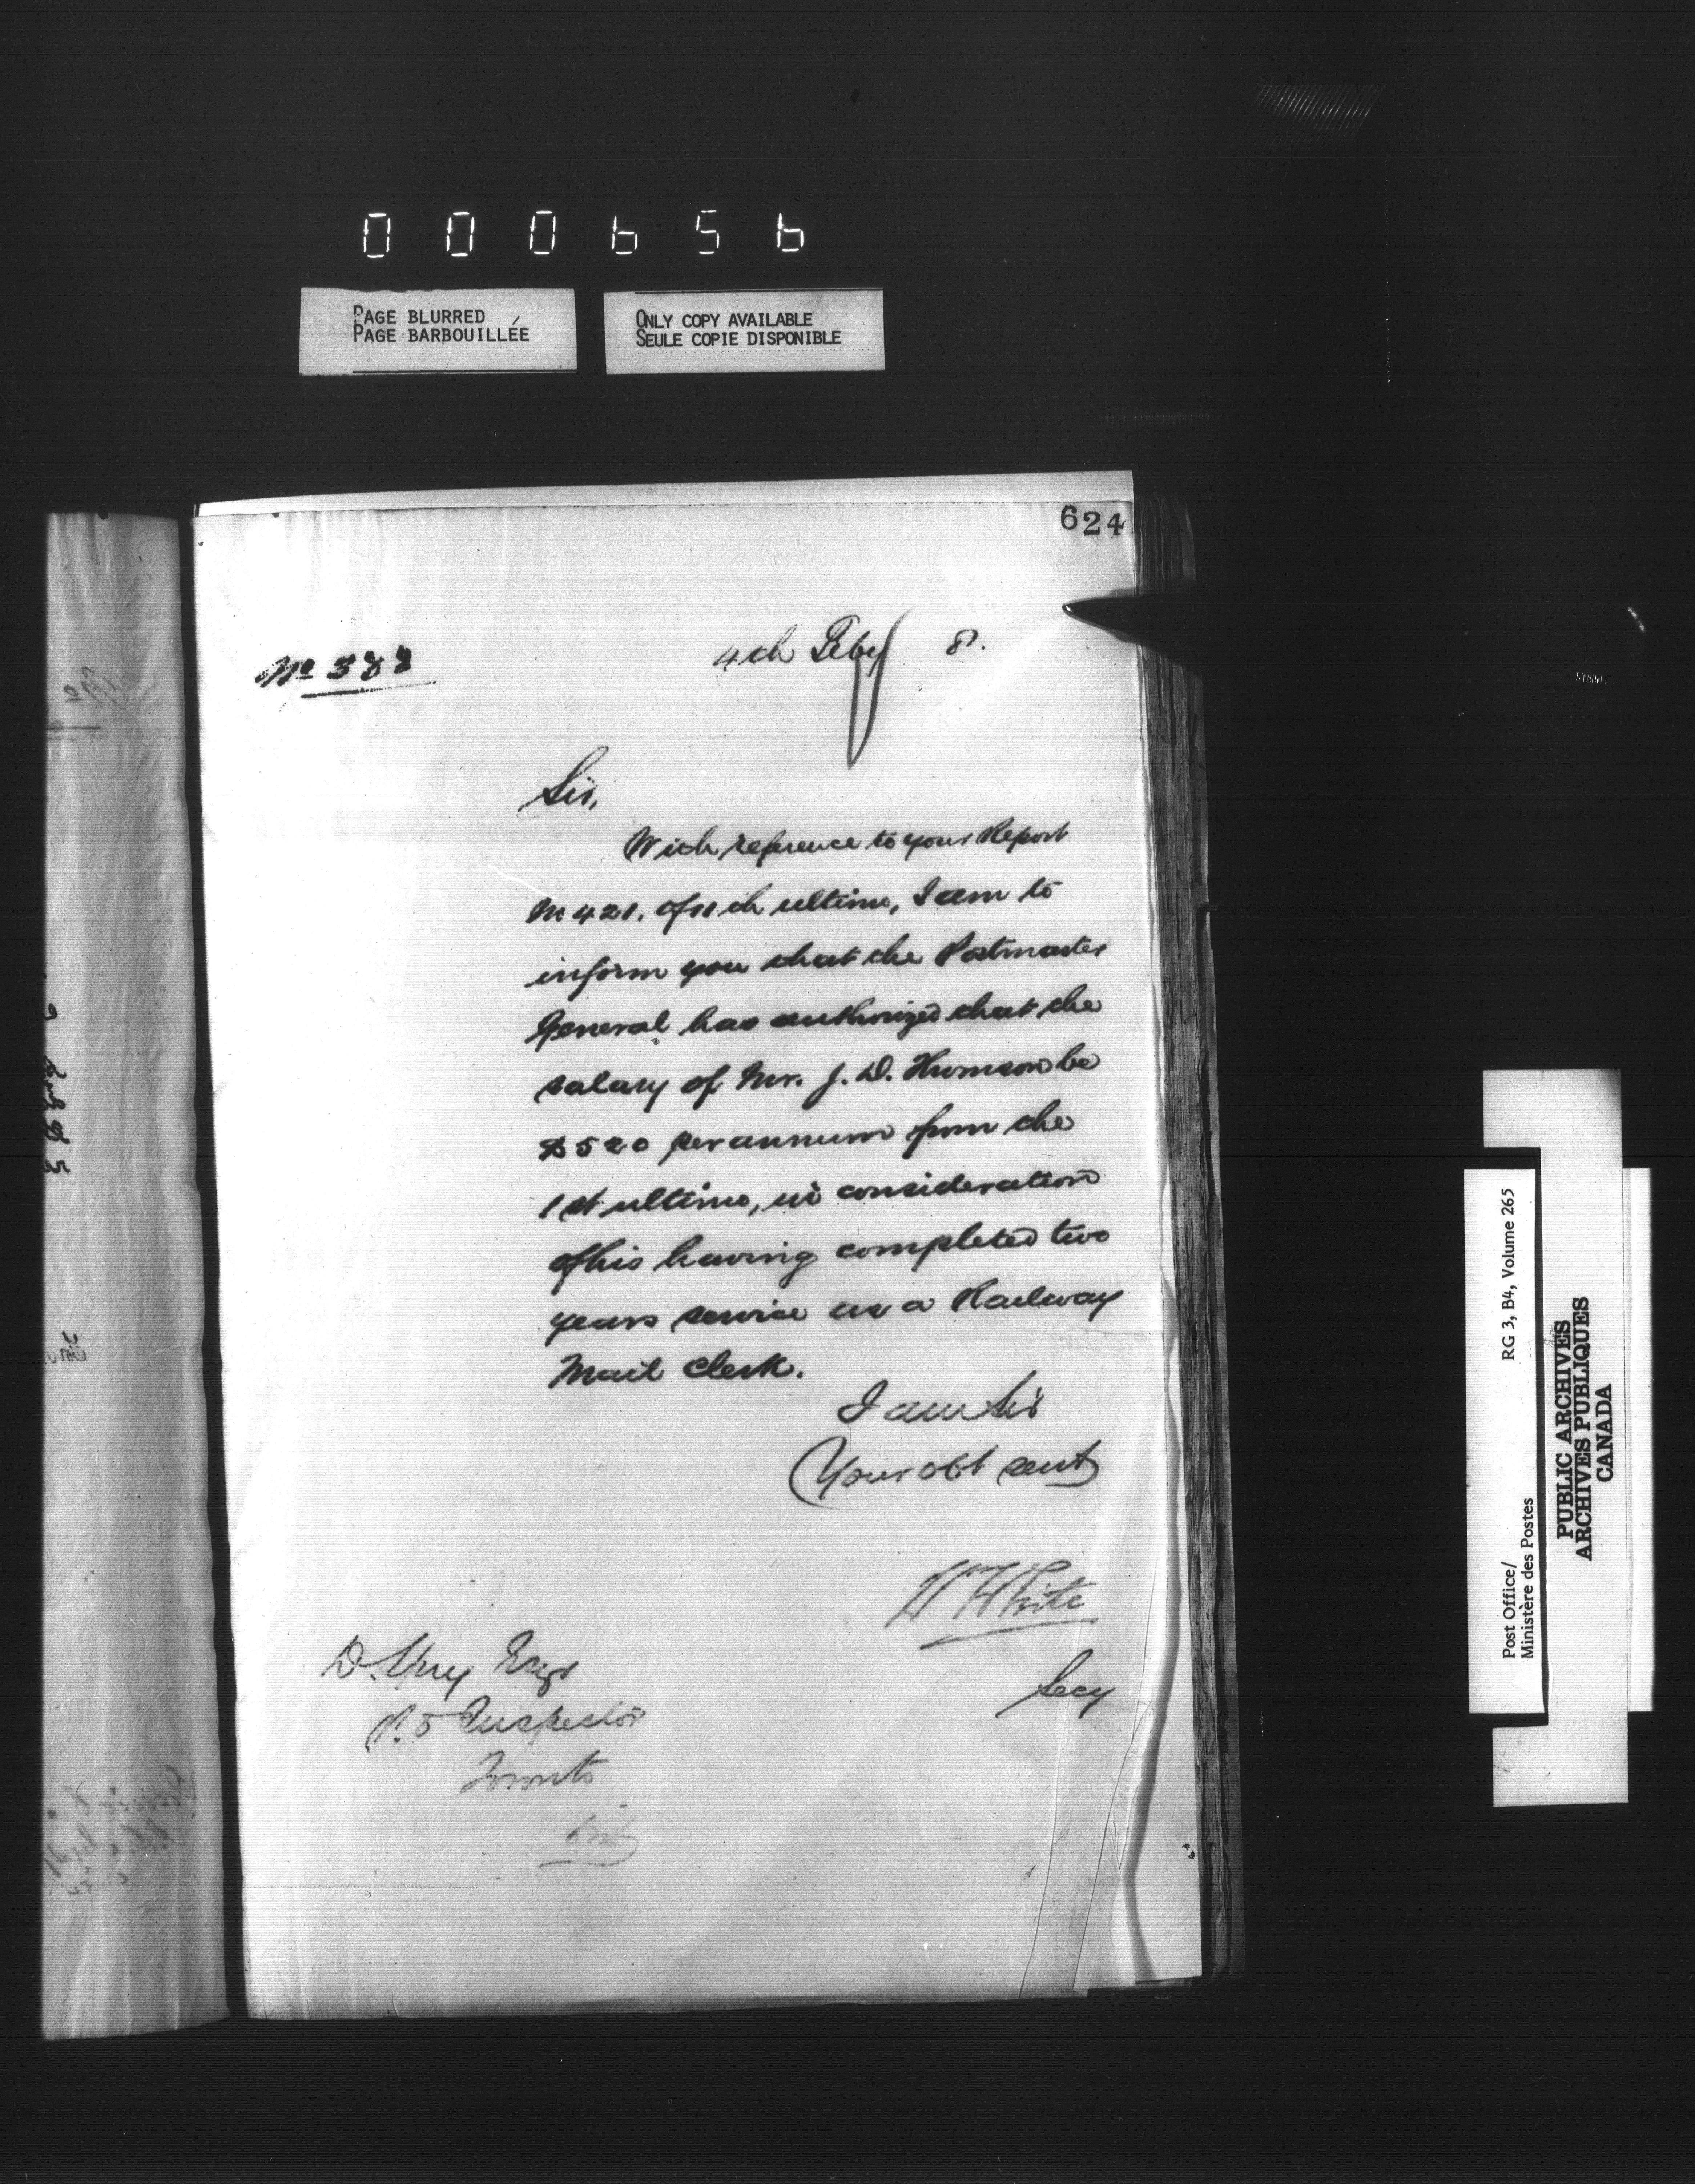 000656
PAGE BLURRED
PAGE BARBOUILLÉE
ONLY COPY AVAILABLE
SEULE COPIE DISPONIBLE
624
No 533
4th Feby 81.
Sir,
With reference to your Report
M 421. of 11th ultimo, I am to
inform you that the Postmaster
General has authorized that the
salary of Mr. J. D. Thomson be
$520 per annum from the
1st ultimo, in consideration
of his having completed two
years service as a Railway
Mail Clerk.
I am Sir
Your obt servt
W White
Secy
D. Spry Esqr
P. O Inspector
Toronto
Ont
Post Office/
Ministère des Postes
RG 3, B4, Volume 265
PUBLIC ARCHIVES
ARCHIVES PUBLIQUES
CANADA